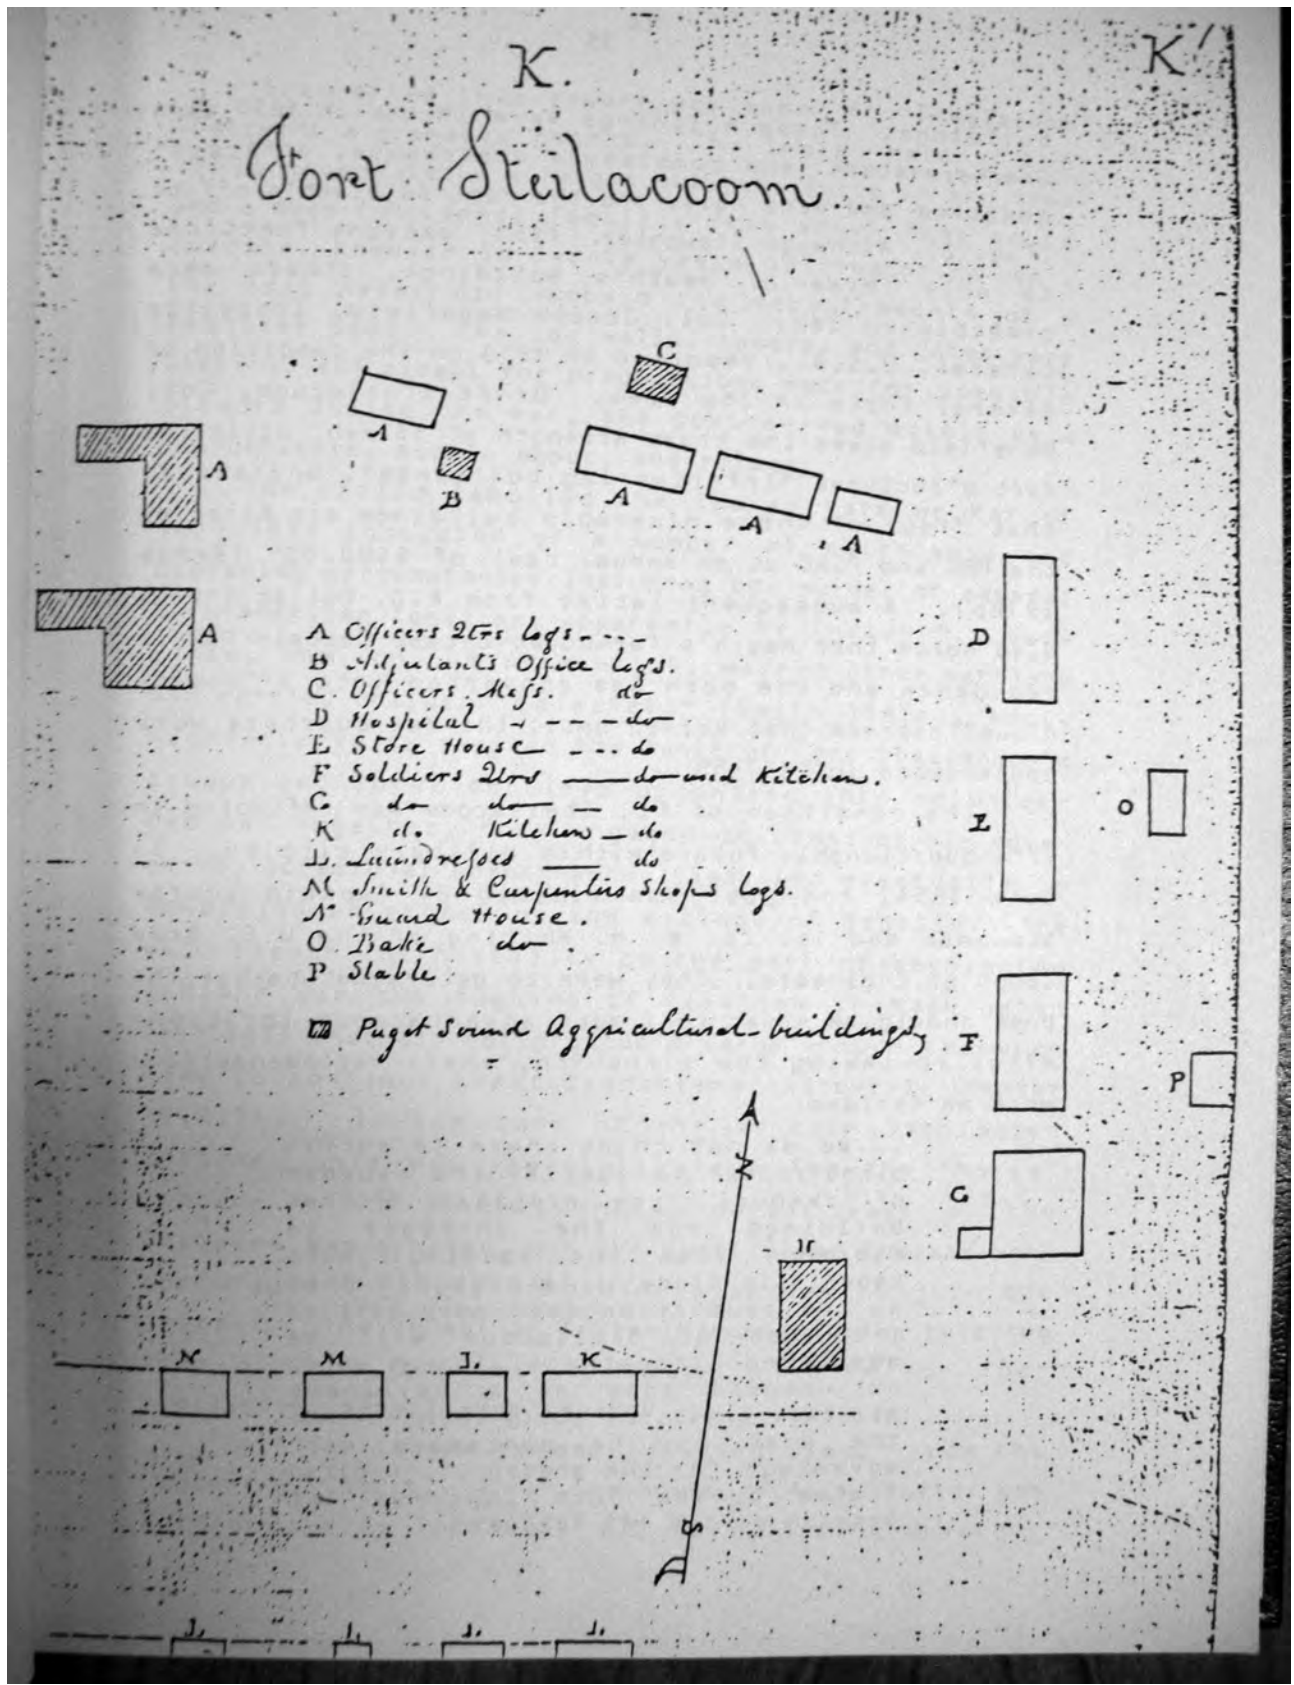 K.
K'
Fort Steilacoom.
C
A
B
A
A
A
A
D
A
A Officers 2trs logs - - - -
B Adjutants Office logs.
C. Officers. Mess. do
D Hospital - - - - do
E Store House - - - do
F Soldiers 2trs —— do and Kitchen.
G do do — do
K do Kitchen — do
L. Laundresses —— do
M Smith & Carpenters Shops logs.
N Guard House.
O. Bake do.
P Stable
Puget Sound Aggricultural-buildings,
E
O
F
P
N
G
H
N
M
L.
K
S
L.
L.
L.
L.